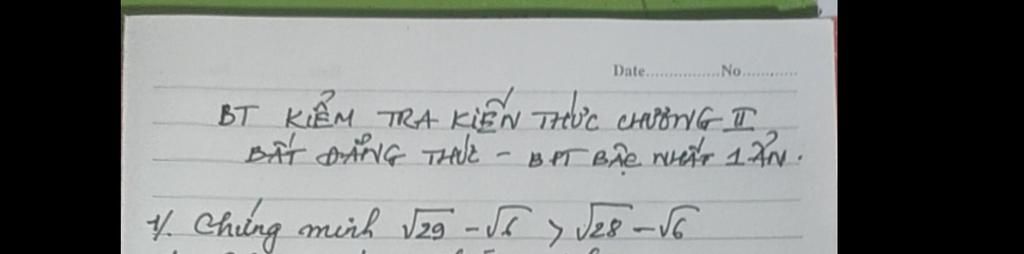 Date................No............
BT KIỂM TRA KIẾN THỨC CHƯƠNG II
BẤT ĐẲNG THỨC - BPT BẬC NHẤT 1 ẨN.
1/. Chứng minh √29 - √6 > √28 - √6